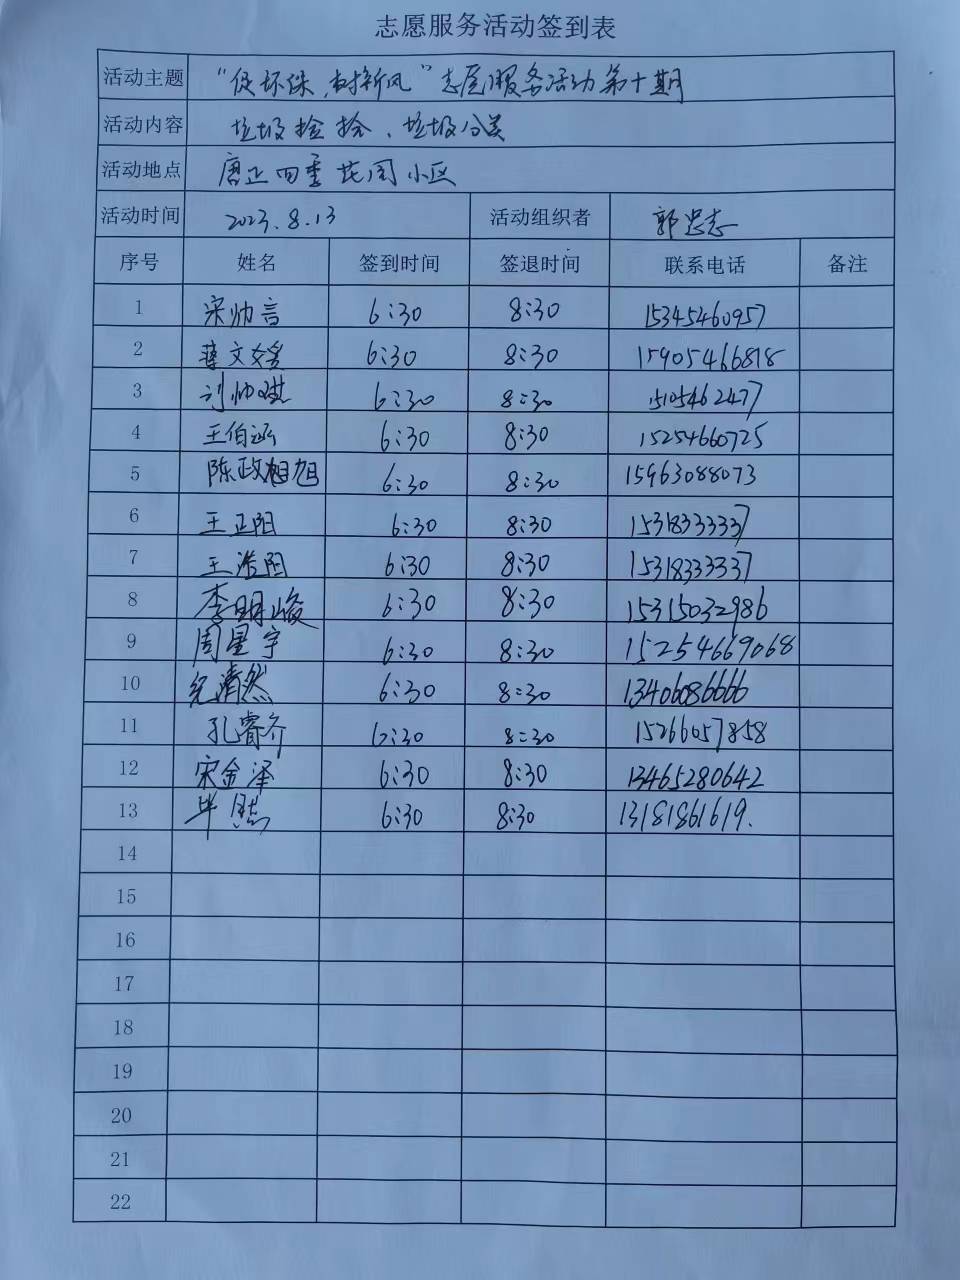 志愿服务活动签到表
活动主题 “促环保，树新风”志愿服务活动第十期
活动内容 垃圾捡拾、垃圾分类
活动地点 唐正四季花园小区
活动时间 2023.8.13 活动组织者 郭忠志
序号 姓名 签到时间 签退时间 联系电话 备注
1 宋帅言 6:30 8:30 15345460957
2 蒋文媛 6:30 8:30 15905466818
3 刘帅琪 6:30 8:30 15105462477
4 王伯涵 6:30 8:30 15254660725
5 陈政旭 6:30 8:30 15963088073
6 王正阳 6:30 8:30 15318333337
7 王浩阳 6:30 8:30 15318333337
8 李明峻 6:30 8:30 15315032986
9 周星宇 6:30 8:30 15254669068
10 纪清然 6:30 8:30 13406086666
11 孔睿齐 6:30 8:30 15266057858
12 宋金泽 6:30 8:30 13465280642
13 毕 6:30 8:30 13181861619.
14
15
16
17
18
19
20
21
22